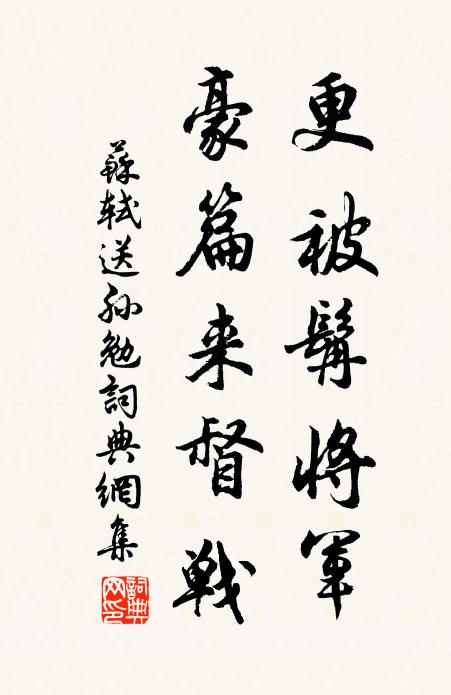 更被髯將軍
豪篇来督戰
蘇軾送孙勉詞典網集
詞典网印